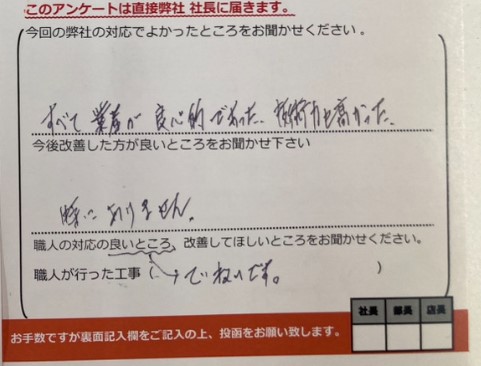 このアンケートは直接弊社 社長に届きます。
今回の弊社の対応でよかったところをお聞かせください。
すべて 業者が 良心的であった。技術力も高かった。
今後改善した方が良いところをお聞かせ下さい
特にありません。
職人の対応の良いところ、改善してほしいところをお聞かせください。
職人が行った工事(→ていねいです。)
社長 部長 店長
お手数ですが裏面記入欄をご記入の上、投函をお願い致します。